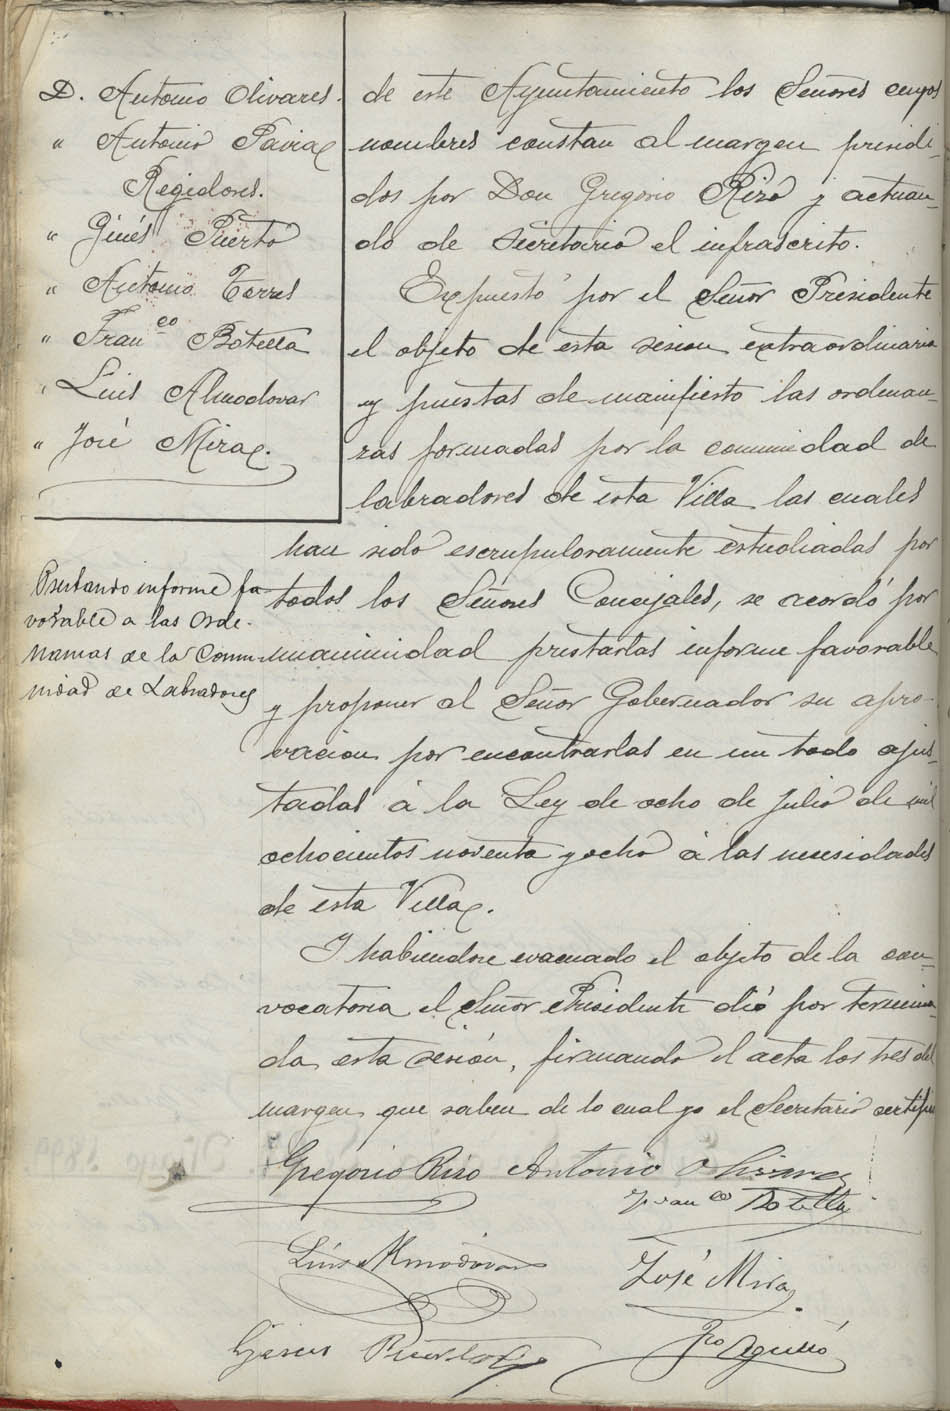 D. Antonio Olivares.
" Antonio Pavia
Regidores.
" Ginés Puerto
" Antonio Torres
" Franco Botella
" Luis Almodovar
" José Mira.
de este Ayuntamiento los Señores cuyos
nombres constan al margen presidi-
dos por Don Gregorio Rizo y actuan-
do de Secretario el infrascrito.
Expuesto por el Señor Presidente
el objeto de esta sesion extraordinaria
y puestas de manifiesto las ordenan-
zas formadas por la comunidad de
labradores de esta Villa las cuales
han sido escrupulosamente estudiadas por
todos los Señores Concejales, se acordó por
unanimidad prestarlas informe favorable
y proponer al Señor Gobernador su apro-
vacion por encontrarlas en un todo ajus-
tadas á la Ley de ocho de Julio de mil
ochocientos noventa y ocho á las necesidades
de esta Villa.
Y habiendose evacuado el objeto de la con-
vocatoria el Señor Presidente dió por termina-
da esta sesión, firmando el acta los tres del
margen que saben de lo cual yo el Secretario certifico
informe fa
vorable a las Orde-
nansas de la Comu-
nidad de Labradores
Gregorio Rizo Antonio Olivares
Franco Botella
Luis Almodovar
José Mira
Gines Puerto
Fco Agulló